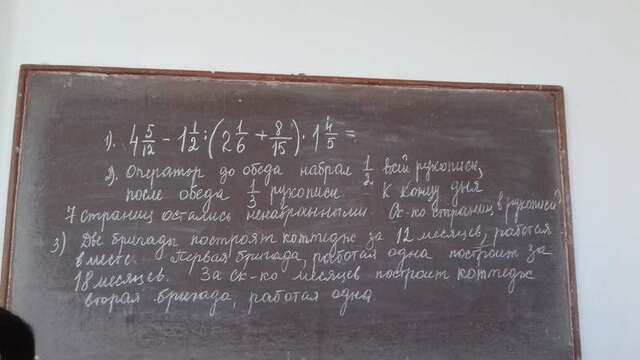 1). 4 5/12 - 1 1/2 : (2 1/6 + 8/15) · 1 4/5 =
2). Оператор до обеда набрал 1/2 всей рукописи,
после обеда 1/3 рукописи К концу дня
7 страниц остались ненабранными. Ск-ко страниц в рукописи
3) Две бригады построят коттедж за 12 месяцев, работая
вместе. Первая бригада, работая одна построит за
18 месяцев. За ск-ко месяцев построит коттедж
вторая бригада, работая одна